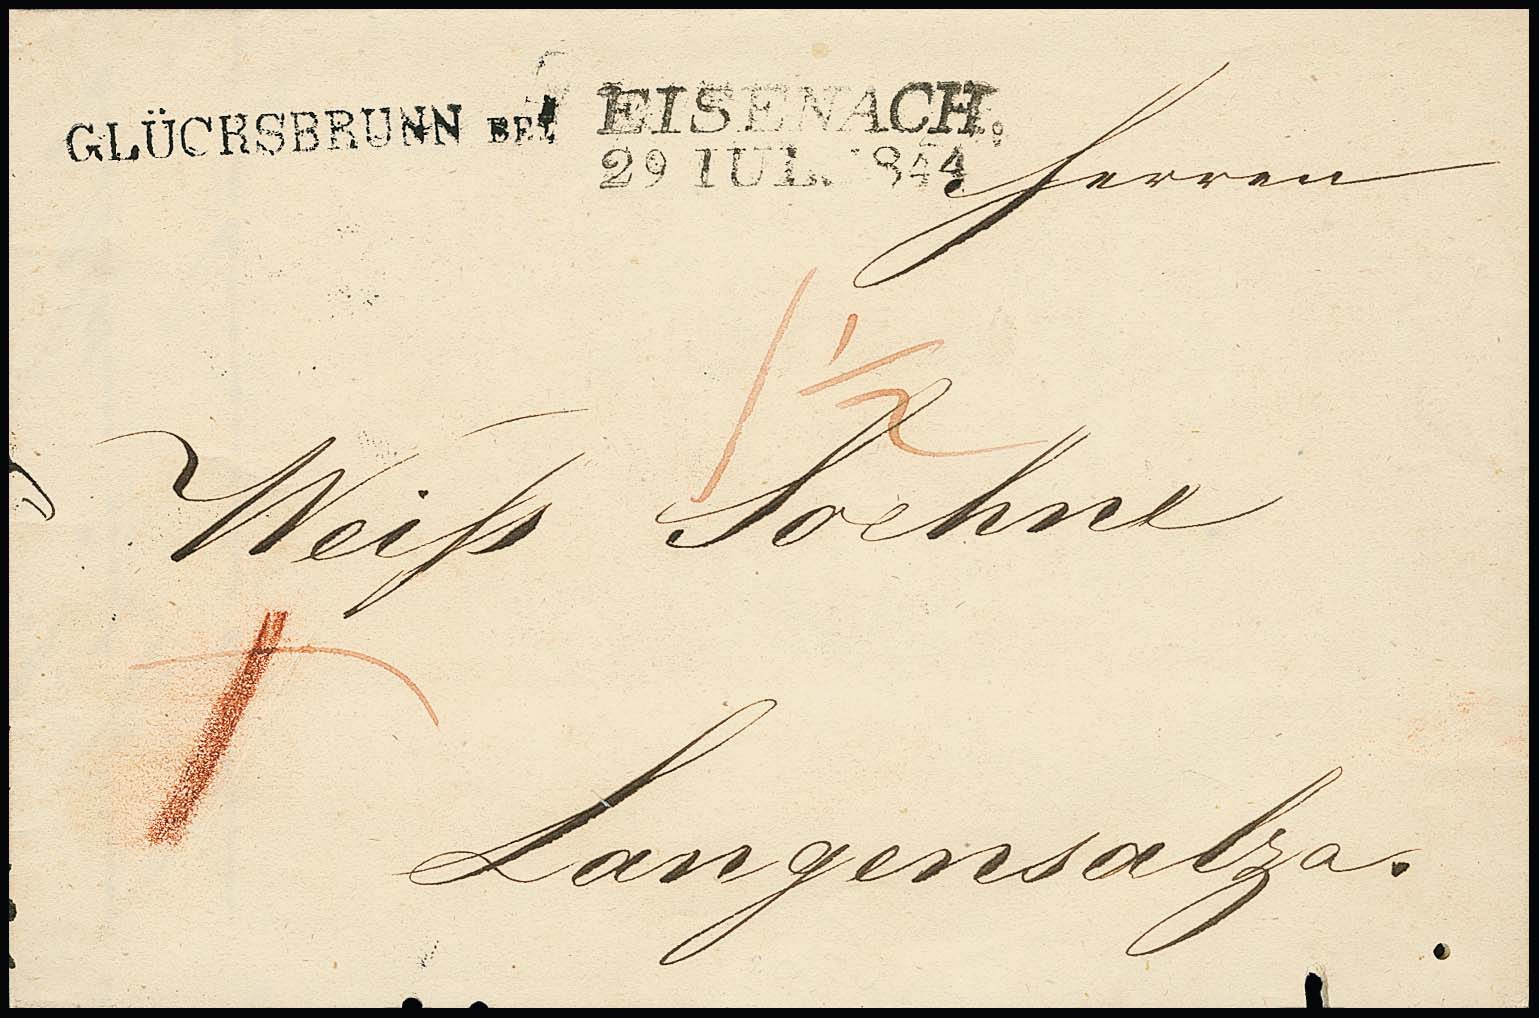 GLÜCKSBRUNN BEI EISENACH.
29 IUL. 1844
Herren
1 1/2
Weiß Soehne
Langensalza.